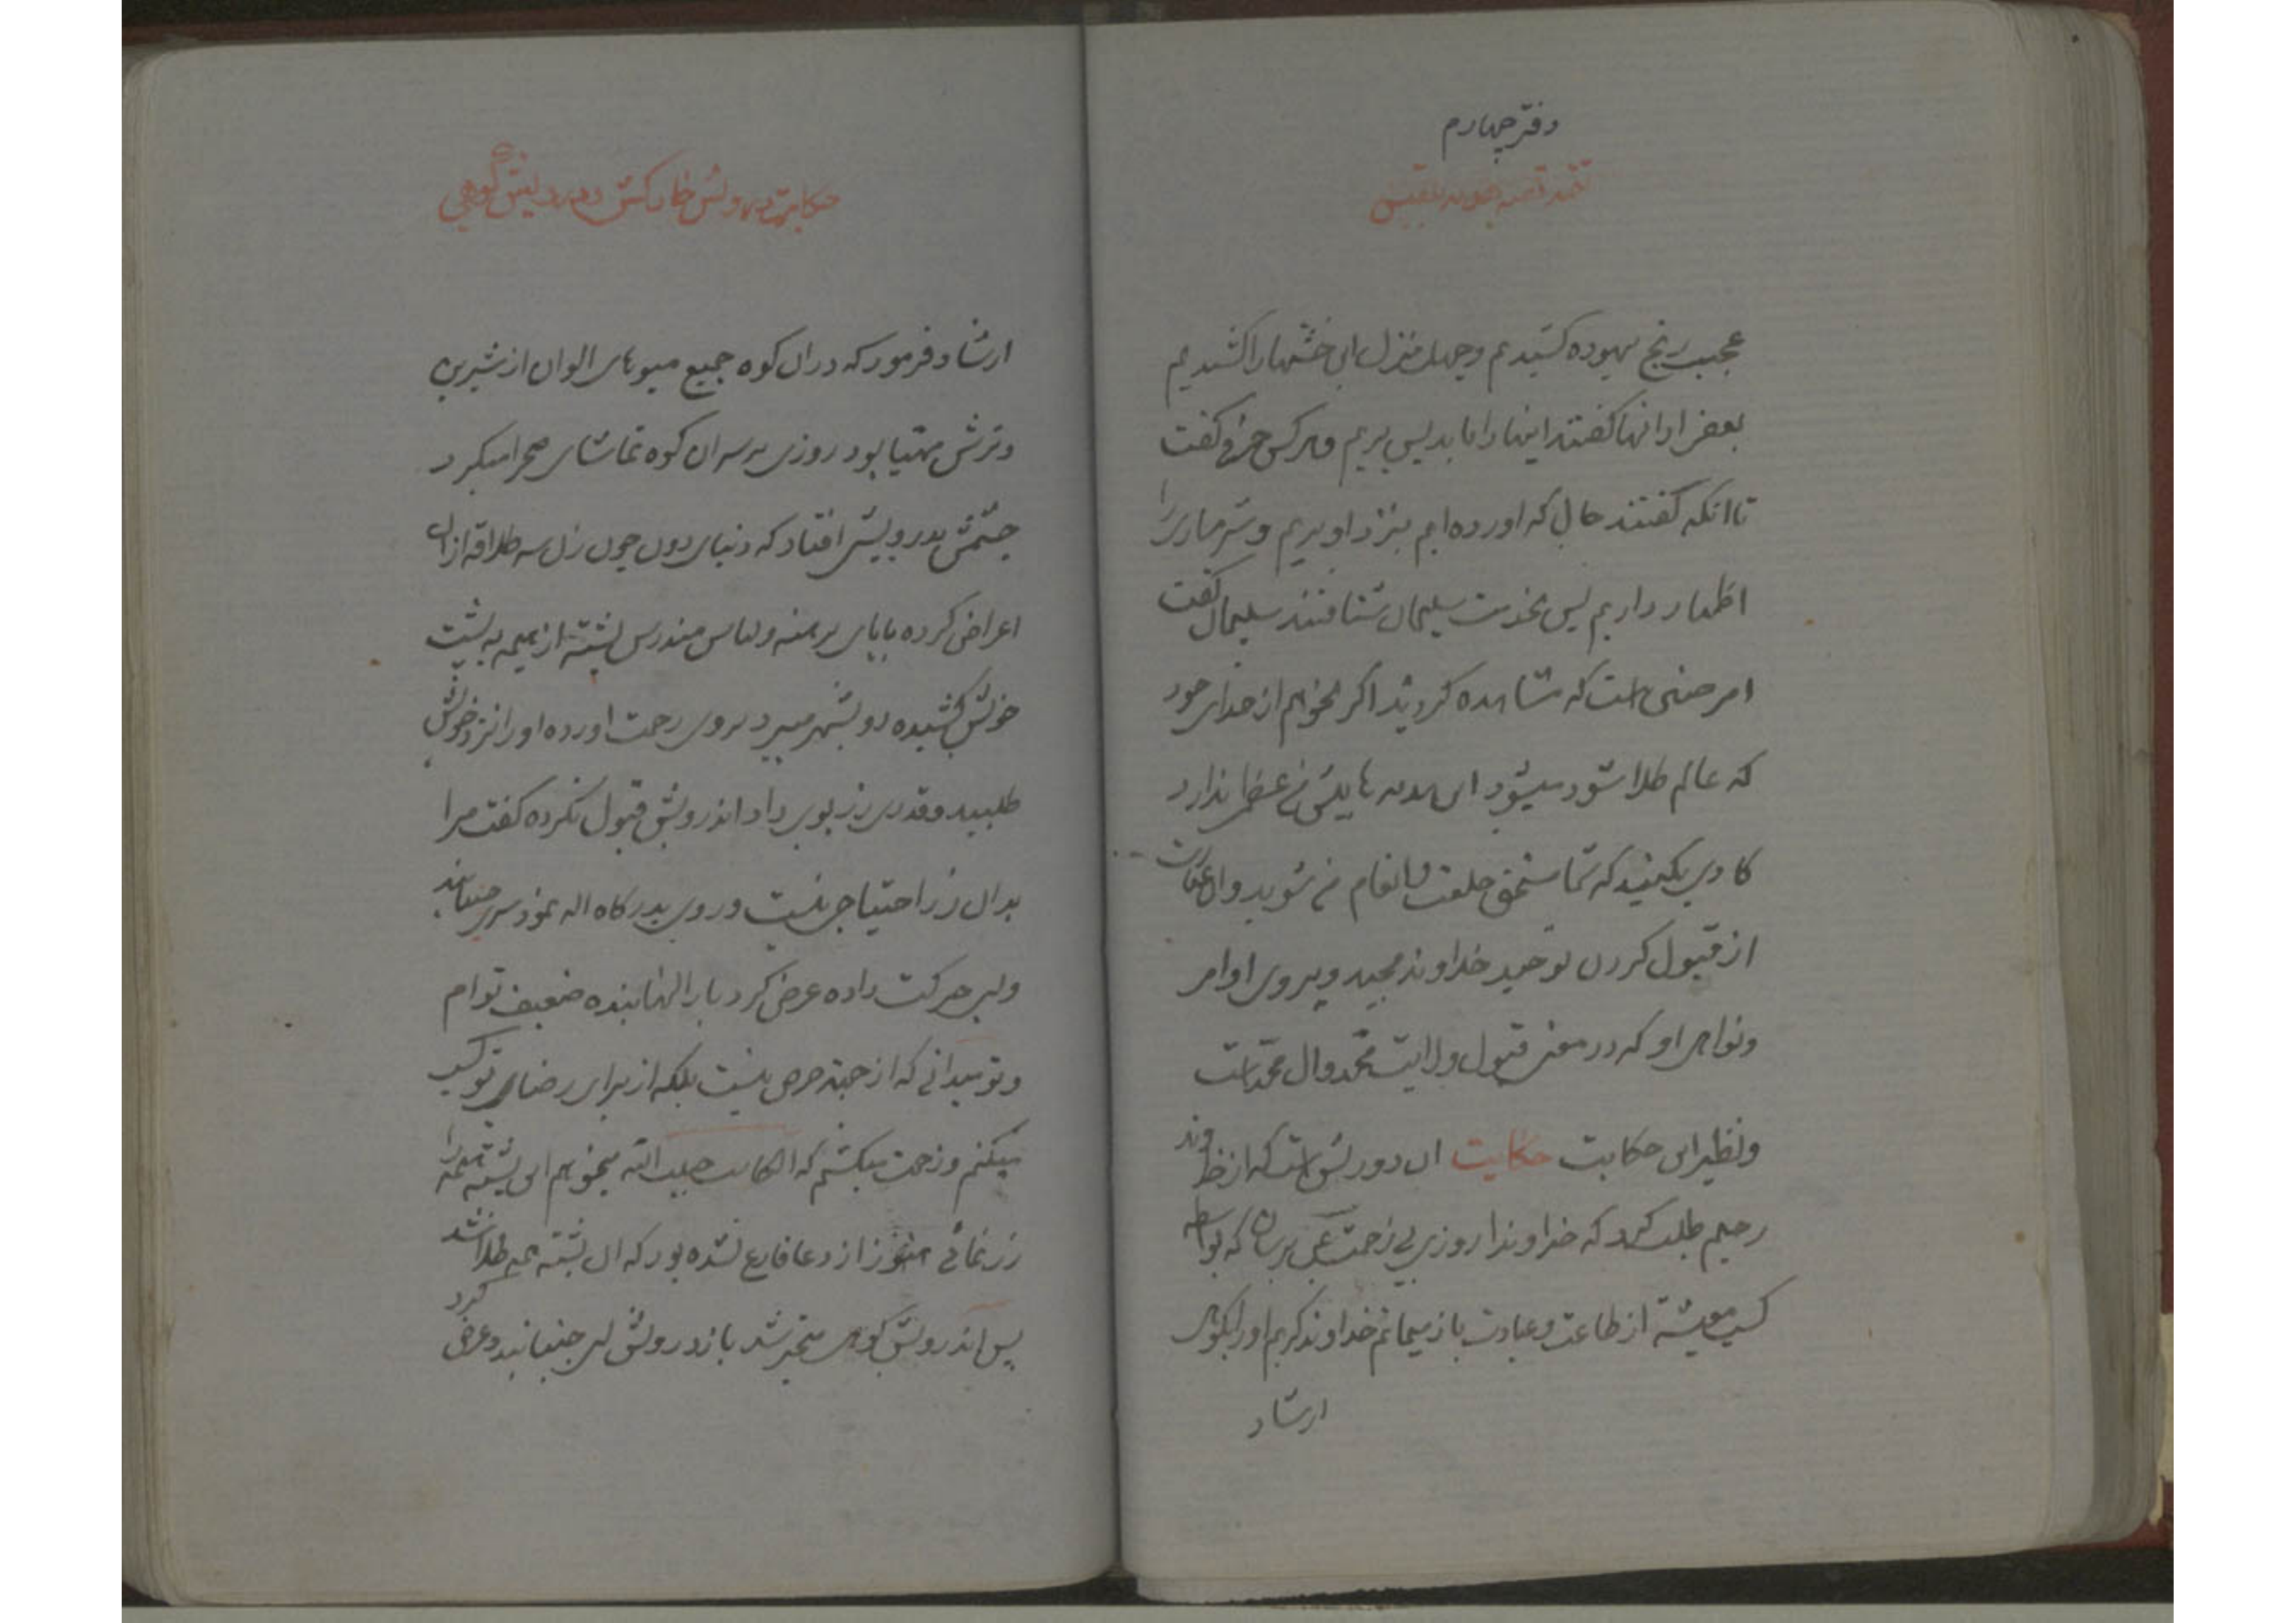 دفتر چهارم
تتمه قصه هدیه بلقیس
عجب رنج بیهوده کشیدیم و چهل منزل این خشتها را کشیدیم
بعضی از انها گفتند اینها را باید پس بریم و هر کس حرفی گفت
تا انکه گفتند حال که اورده ایم بنزد او بریم و شرمساری را
اظهار داریم پس بخدمت سلیمان شتافتند سلیمان گفت
امر چنین است که مشاهده کردید اگر بخواهم از خدای خود
که عالم طلا شود میشود این هدیه ها پیش من عظمی ندارد
کاری بکنید که شما مستحق خلعت و انعام من شوید و ان عبارت
از قبول کردن توحید خداوند مجید و پیروی اوامر
و نواهی او که در معنی قبول ولایت محمد و ال محمد است
و نظیر این حکایت حکایت ان درویش است که از خداوند
رحیم طلب کرد که خداوندا روزی بی زحمت بمن برسان که بواسطه
کسب معیشة از طاعت و عبادت باز میمانم خداوند کریم او را بکوهی
ارشاد
حکایت درویش خارکش و درویش کوهی
ارشاد فرمود که در ان کوه جمیع میوهای الوان از شیرین
و ترش مهیا بود روزی بر سر ان کوه تماشای صحرا میکرد
چشمش بدرویشی افتاد که دنیای دون چون زن سه طلاقه از ان
اعراض کرده با پای برهنه و لباس مندرس پشته از هیمه به پشت
خویش کشیده رو بشهر میبرد بروی رحمت اورده او را نزد خویش
طلبید و قدری زر بوی داد اندرویش قبول نکرده گفت مرا
بدان زر احتیاجی نیست و روی بدرکاه اله نمود سری جنبانید
و لبی حرکت داده عرض کرد بار الها بنده ضعیف توام
و تو میدانی که از جهة حرص نیست بلکه از برای رضای تو کسب
میکنم و زحمت میکشم که الکاسب حبیب الله میخواهم این پشته هیمه را
زر نمائی هنوز از دعا فارغ نشده بود که ان پشته هیمه طلا شد
پس اندرویش کوهی متحیر شد باز درویش لبی جنبانید و عرض کرد